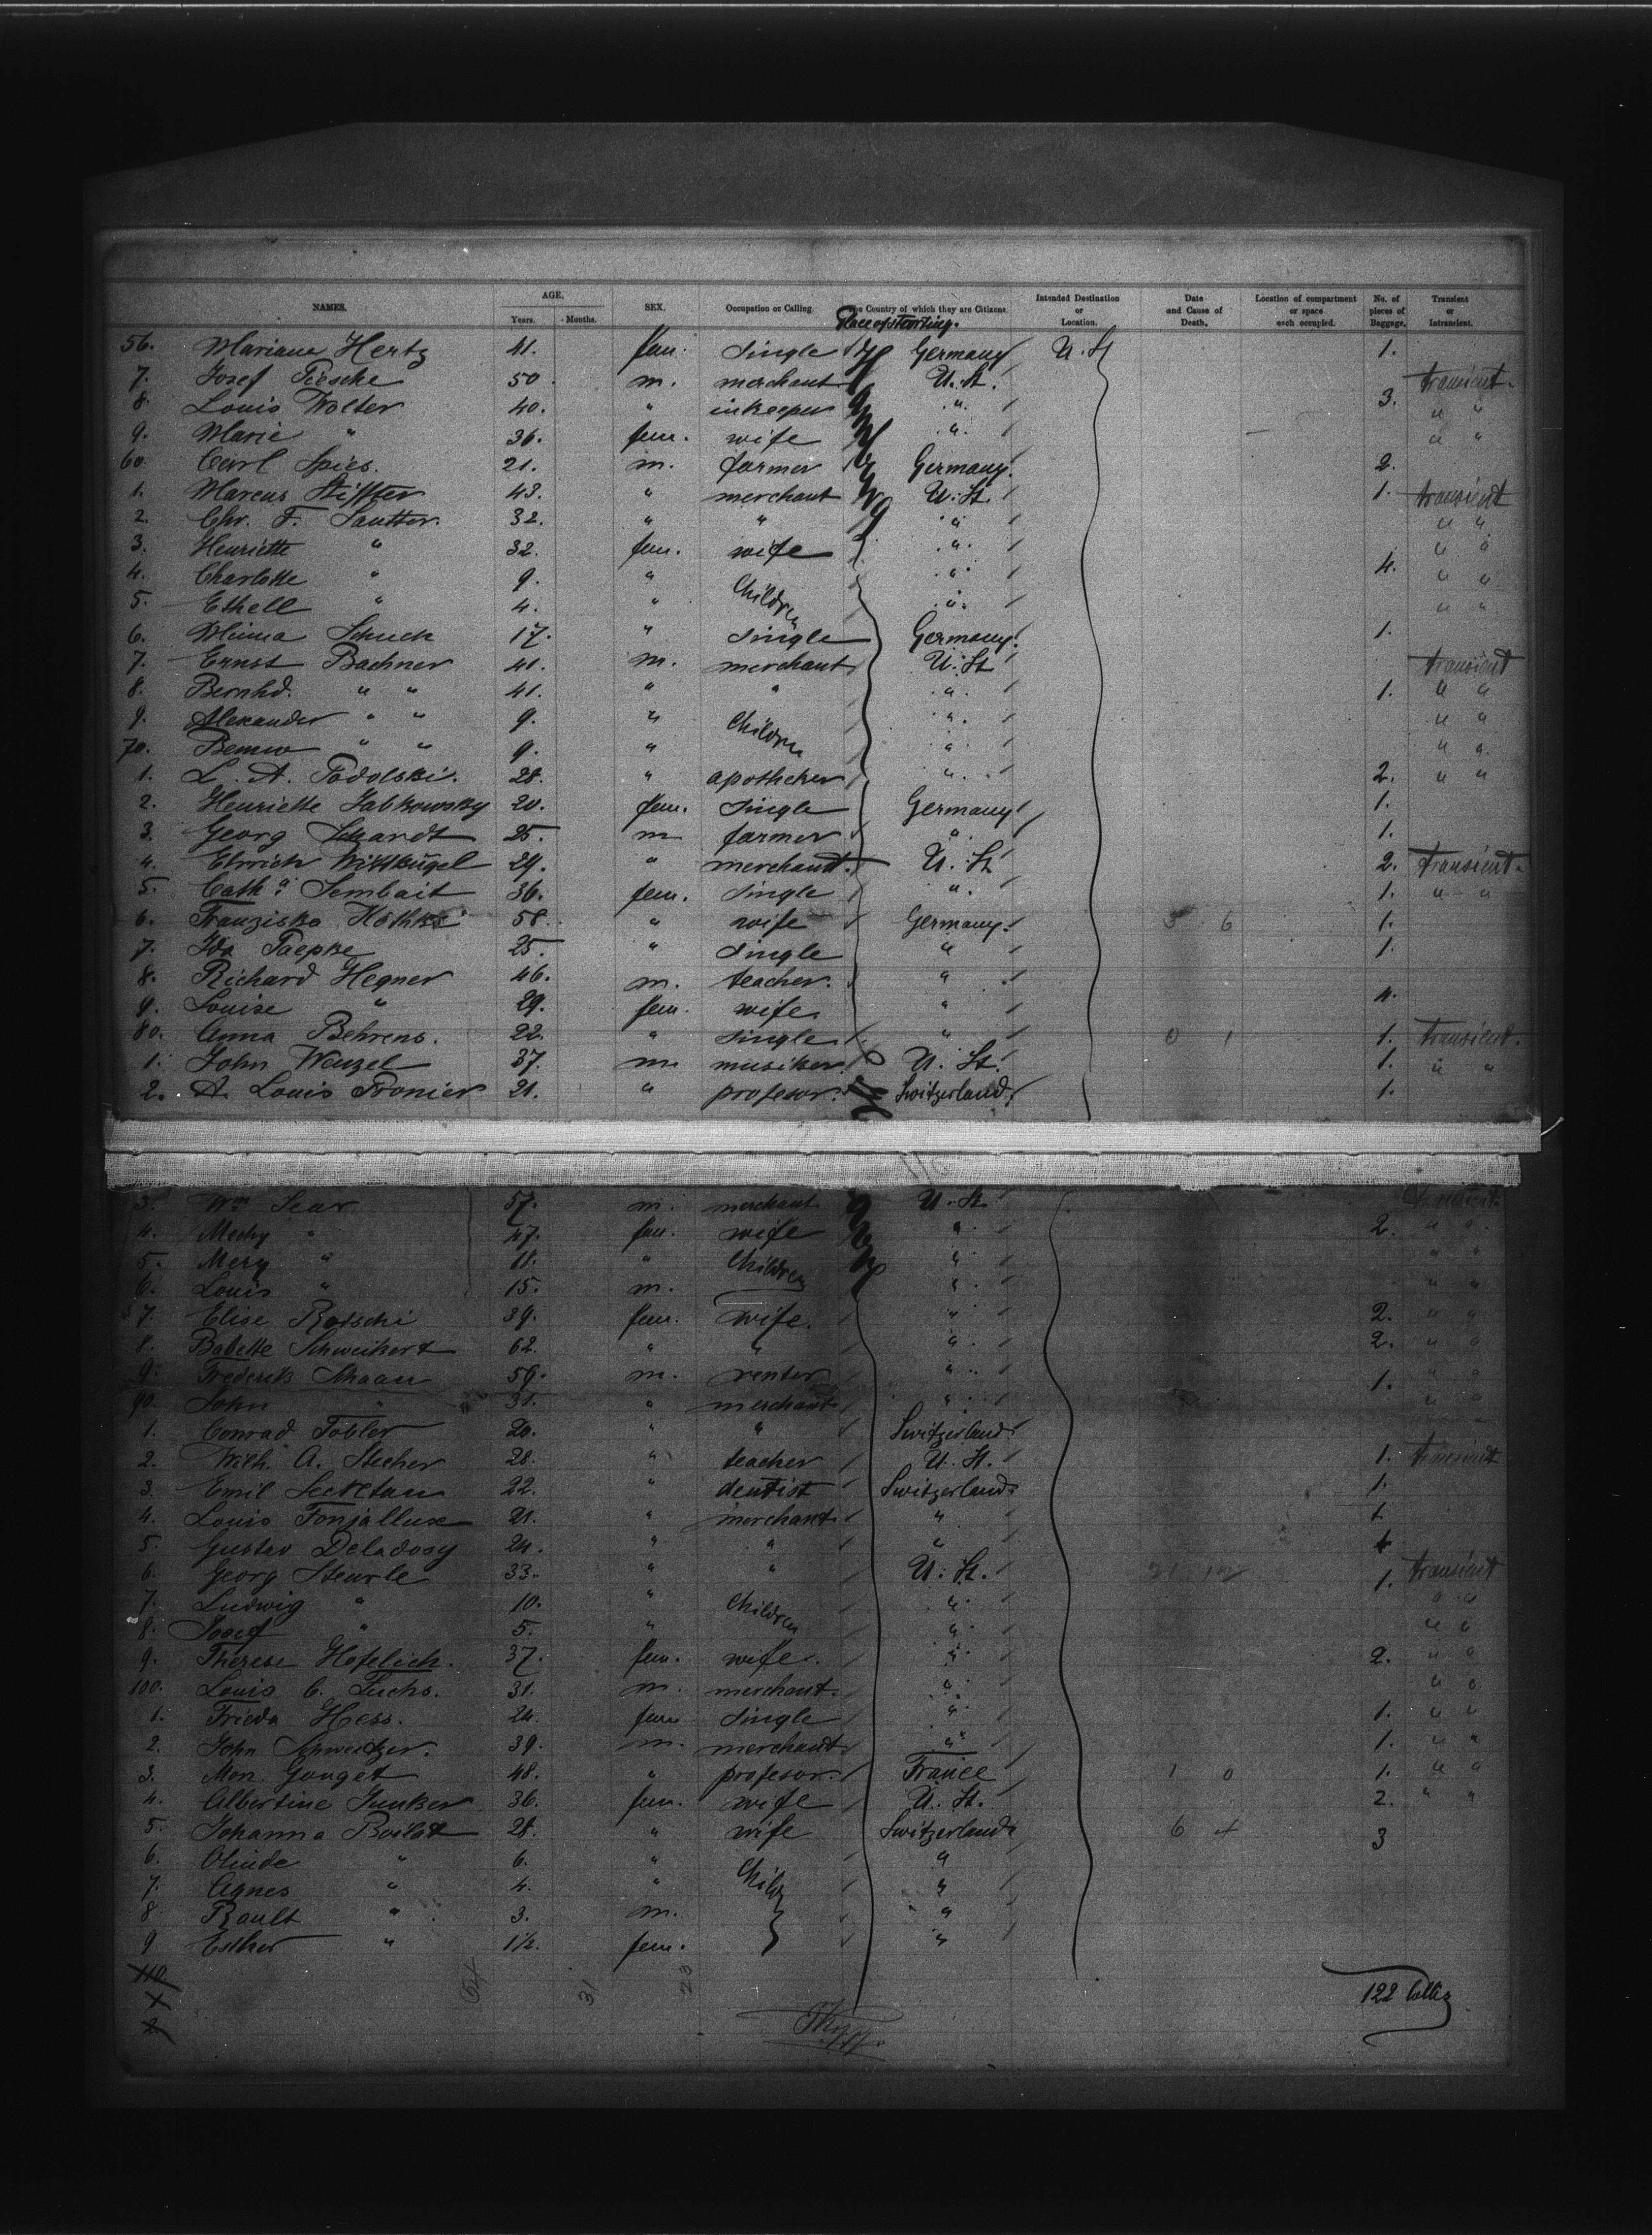 NAMES. AGE, Years. Months. SEX. Occupation or Calling. The Country of which they are Citizens. Intended Destination or Location. Date and Cause of Death. Location of compartment or space each occupied. No. of pieces of Baggage. Transient or Intransient.
Place of starting.
56. Mariane Hertz 41. fem. single Germany U. St 1.
7. Josef Piesche 50. m. merchant U. St. transient.
8. Louis Wolter 40. " inkeeper " 3. " "
9. Marie " 36. fem. wife " " "
60. Carl Spies. 21. m. farmer Germany. 2.
1. Marcus Stiffter 43. " merchant U. St. 1. transient
2. Chr. F. Sautter. 32. " " " " "
3. Henriette " 32. fem. wife " " "
4. Charlotte " 9. " Children " 4. " "
5. Ethell " 4. " " " "
6. Minna Schuck 17. " single Germany. 1.
7. Ernst Bachner 41. m. merchant U. St transient
8. Bernhd. " " 41. " " " 1. " "
9. Alexander " " 9. " Children " " "
70. Benno " " 9. " " " "
1. L. A. Podolski. 28. " apotheker " 2. " "
2. Henriette Jabkowsky 20. fem. single Germany 1.
3. Georg 25. m farmer " 1.
4. Wittkugel 29. " merchant. U. St 2. transient.
5. Cath.a Sembait 36. fem. single " 1. " "
6. Franziska 58. " wife Germany. 3 6 1.
7. Ida Paepke 25. " single " 1.
8. Richard Hegner 46. m. teacher. "
9. Louise " 29. fem. wife. " 4.
80. Anna Behrens. 22. " single " 0 1 1. transient.
1. John Wenzel 37. m. musiker. U. St. 1. " "
2. A. Louis Pronier 21. " profesor. Switzerland. 1.
116
3. Wm Sear 57. m. merchant U. St. transient.
4. Mechy " 47. fem. wife " 2. " "
5. Mery " 18. " Children " " "
6. Louis " 15. m. " " "
7. Elise Rotschi 39. fem. wife. " 2. " "
8. Babette Schweikert 62. " " " 2. " "
9. Frederik Schaan 59. m. renter " 1. " "
90. John " 31. " merchant " " "
1. Conrad Tobler 20. " " Switzerland.
2. Wilh. A. Stecher 28. " teacher U. St. 1. transient
3. Emil Secretan 22. " dentist Switzerland. 1.
4. Louis Fonjallux 21. " merchant " 1.
5. Gustav Deladoey 24. " " " 1
6. Georg Steurle 33. " " U. St. 1. transient
7. Ludwig " 10. " Children " " "
8. Josef " 5. " " " "
9. Therese Hofelich. 37. fem. wife. " 2. " "
100. Louis C. Fuchs. 31. m. merchant. " " "
1. Frieda Hess. 24. fem single " 1. " "
2. John Schweitzer. 39. m. merchant " 1. " "
3. Mon. Gouget 48. " profesor. France 1 0 1. " "
4. Albertine Junker 36. fem. wife U. St. 2. " "
5. Johanna Boilat 28. " wife Switzerland 6 4 3
6. Olinde " 6. " Child "
7. Agnes " 4. " "
8. Rault " 3. m. "
9. Esther " 1½. fem. "
110
1
2
31 23
122 Collis